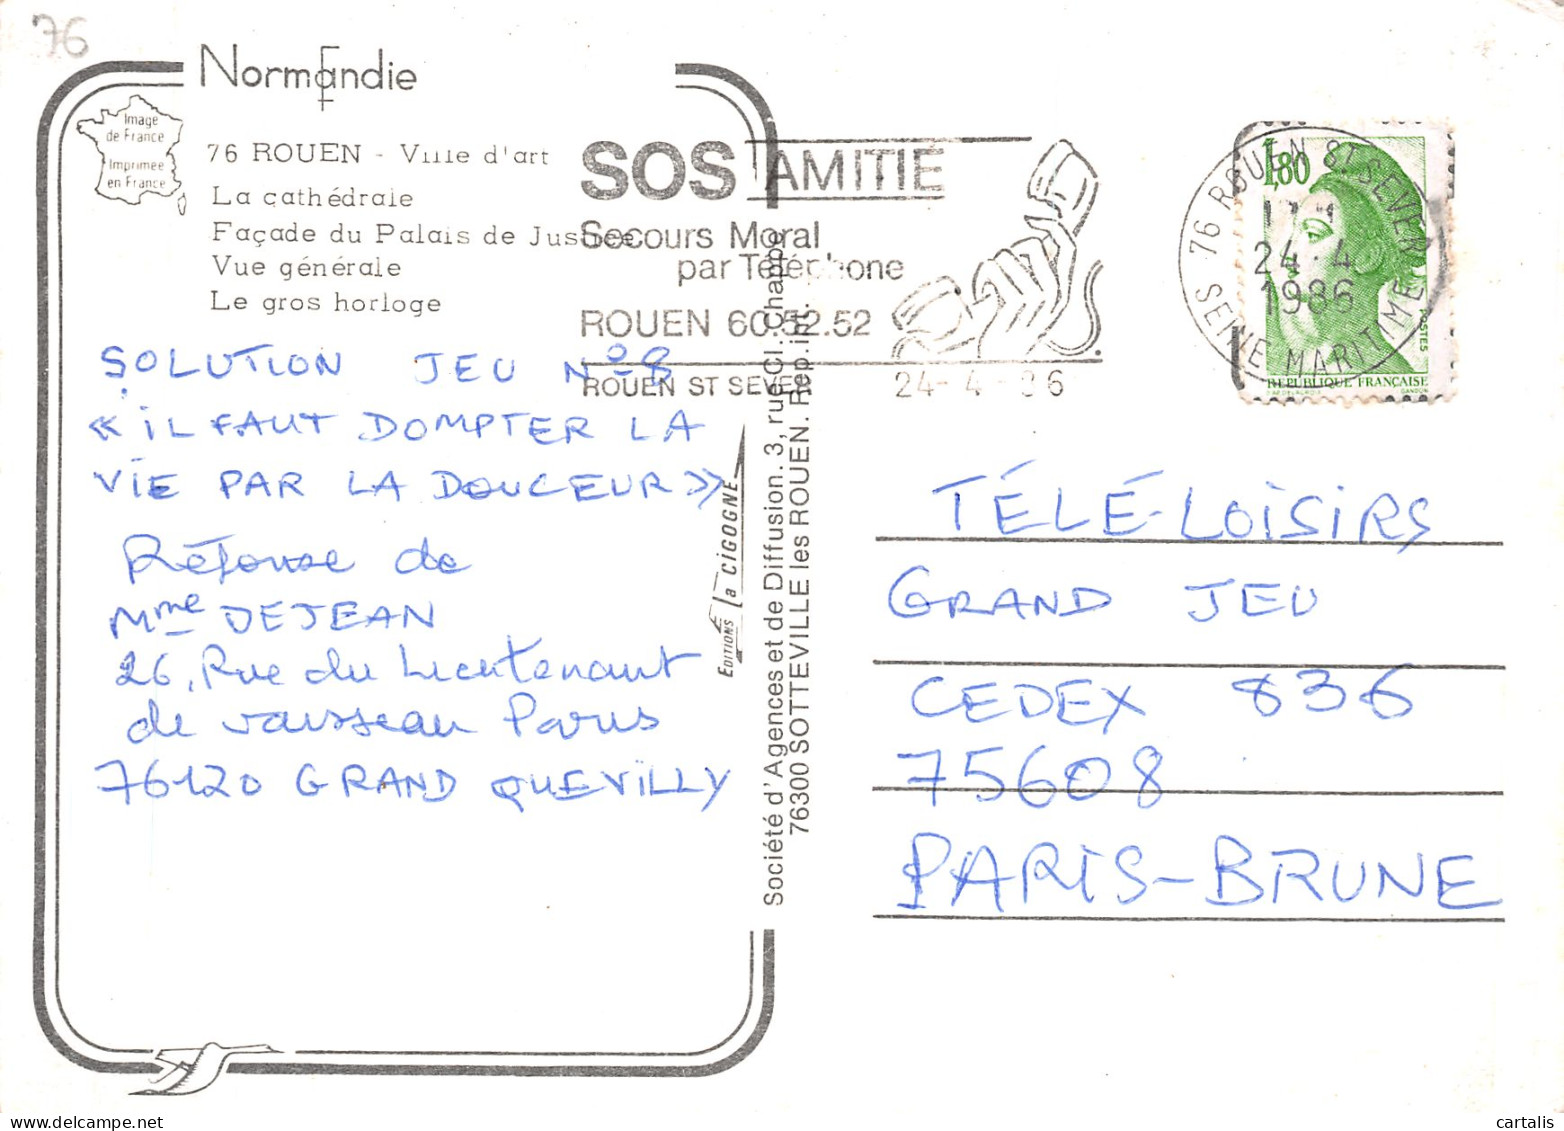 76
Normandie
Image
de France
Imprimée
en France
76 ROUEN - Ville d'art
La cathédrale
Façade du Palais de Justice
Vue générale
Le gros horloge
SOS AMITIE
Secours Moral
par Téléphone
ROUEN 60.52.52
ROUEN ST SEVER 24-4-86
76 ROUEN ST SEVER
24-4
1986
SEINE MARITIME
1,80
POSTES
REPUBLIQUE FRANÇAISE
SOLUTION JEU N° 8
« IL FAUT DOMPTER LA
VIE PAR LA DOUCEUR »
Réponse de
Mme DEJEAN
26, Rue du Lieutenant
de vaisseau Paris
76120 GRAND QUEVILLY
EDITIONS la CIGOGNE
Société d'Agences et de Diffusion. 3, rue Cl. Chappe
76300 SOTTEVILLE les ROUEN. Rep. int.
TÉLÉ-LOISIRS
GRAND JEU
CEDEX 836
75608
PARIS-BRUNE
cartalis